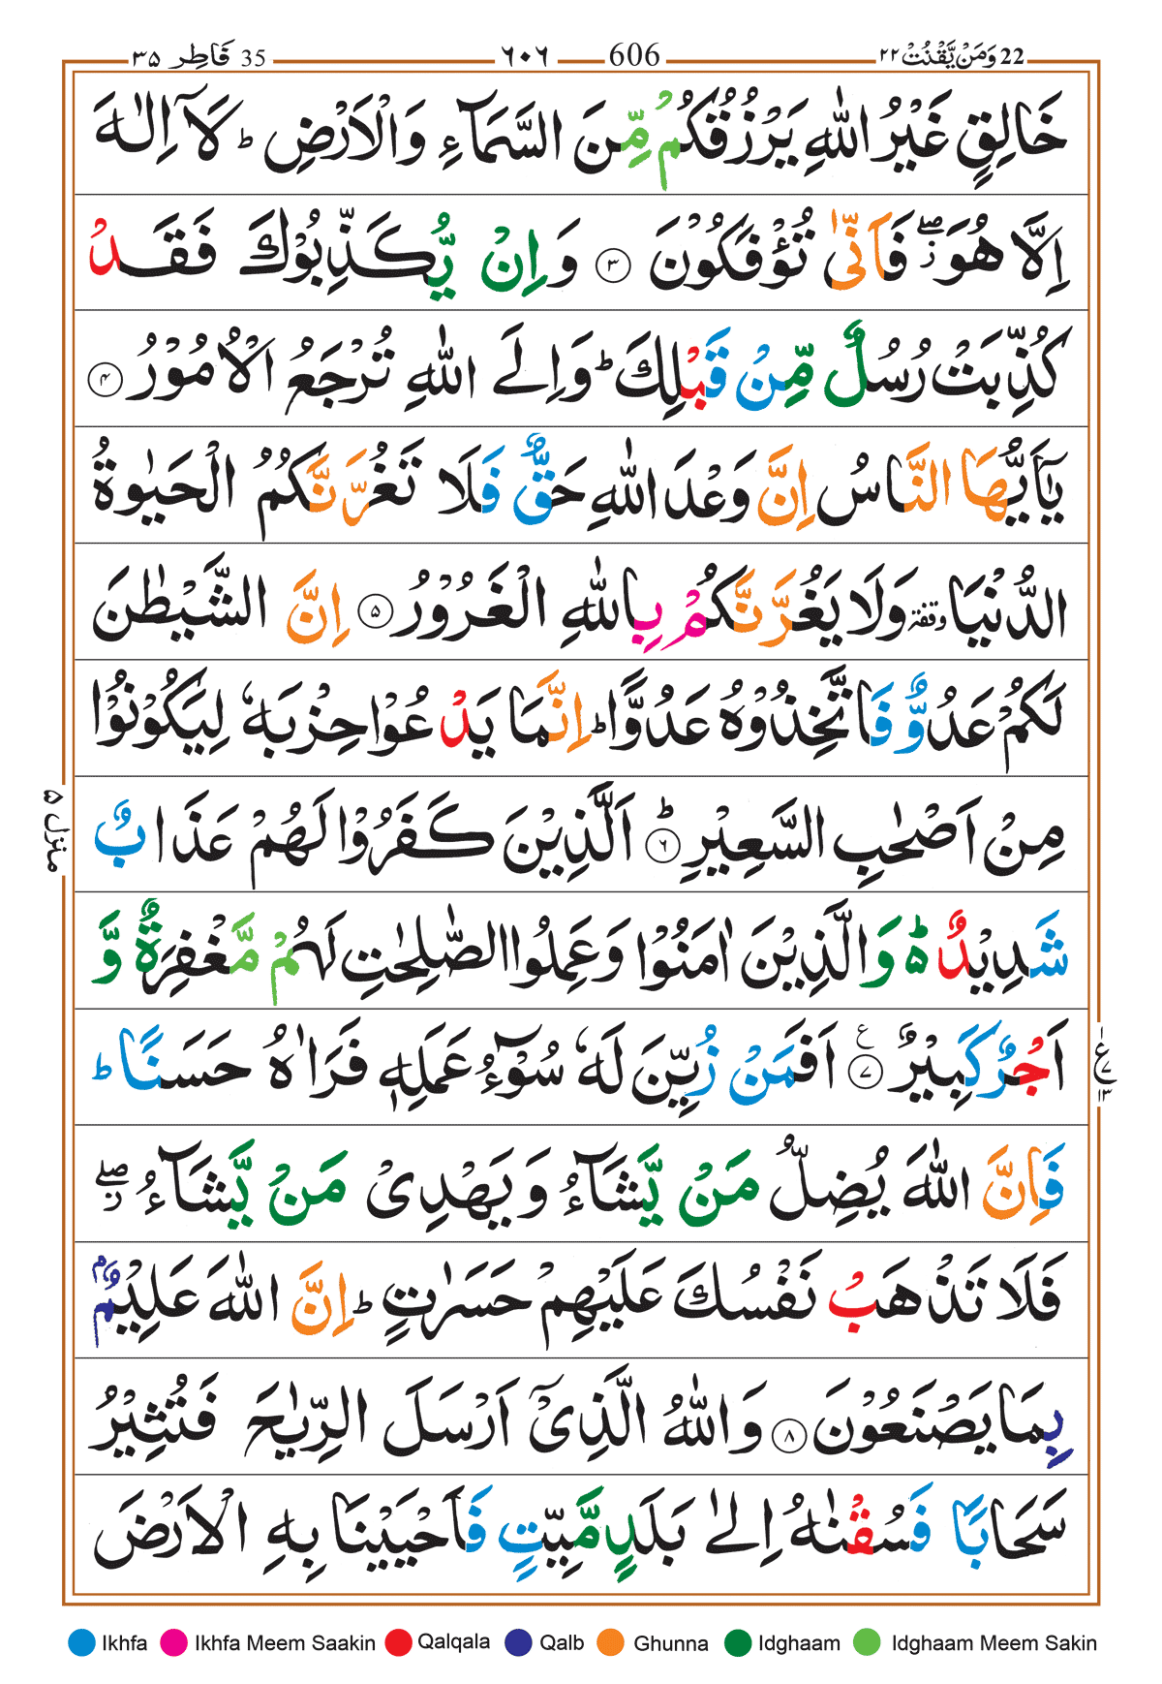 22 وَمَنْ يَّقْنُتْ ٢٢ 606 ٦٠٦ 35 فَاطِر ٣٥
خَالِقٍ غَيْرُ اللّٰهِ يَرْزُقُكُمْ مِّنَ السَّمَآءِ وَالْاَرْضِ ؕ لَاۤ اِلٰهَ
اِلَّا هُوَ ۖ ز فَاَنّٰى تُؤْفَكُوْنَ ٣ وَاِنْ يُّكَذِّبُوْكَ فَقَدْ
كُذِّبَتْ رُسُلٌ مِّنْ قَبْلِكَ ؕ وَاِلَى اللّٰهِ تُرْجَعُ الْاُمُوْرُ ٤
يٰۤاَيُّهَا النَّاسُ اِنَّ وَعْدَ اللّٰهِ حَقٌّ فَلَا تَغُرَّنَّكُمُ الْحَيٰوةُ
الدُّنْيَا وقفة وَلَا يَغُرَّنَّكُمْ بِاللّٰهِ الْغَرُوْرُ ٥ اِنَّ الشَّيْطٰنَ
لَكُمْ عَدُوٌّ فَاتَّخِذُوْهُ عَدُوًّا ؕ اِنَّمَا يَدْعُوْا حِزْبَهٗ لِيَكُوْنُوْا
مِنْ اَصْحٰبِ السَّعِيْرِ ؕ ٦ اَلَّذِيْنَ كَفَرُوْا لَهُمْ عَذَابٌ
شَدِيْدٌ ؕ ٥ وَالَّذِيْنَ اٰمَنُوْا وَعَمِلُوا الصّٰلِحٰتِ لَهُمْ مَّغْفِرَةٌ وَّ
اَجْرٌ كَبِيْرٌ ٧ ع اَفَمَنْ زُيِّنَ لَهٗ سُوْٓءُ عَمَلِهٖ فَرَاٰهُ حَسَنًا ؕ
فَاِنَّ اللّٰهَ يُضِلُّ مَنْ يَّشَآءُ وَيَهْدِىْ مَنْ يَّشَآءُ ۖ ز
فَلَا تَذْهَبْ نَفْسُكَ عَلَيْهِمْ حَسَرٰتٍ ؕ اِنَّ اللّٰهَ عَلِيْمٌۢ
بِمَا يَصْنَعُوْنَ ٨ وَاللّٰهُ الَّذِىْۤ اَرْسَلَ الرِّيٰحَ فَتُثِيْرُ
سَحَابًا فَسُقْنٰهُ اِلٰى بَلَدٍ مَّيِّتٍ فَاَحْيَيْنَا بِهِ الْاَرْضَ
منزل ۵
١ ع ٧ ١٣
Ikhfa Ikhfa Meem Saakin Qalqala Qalb Ghunna Idghaam Idghaam Meem Sakin